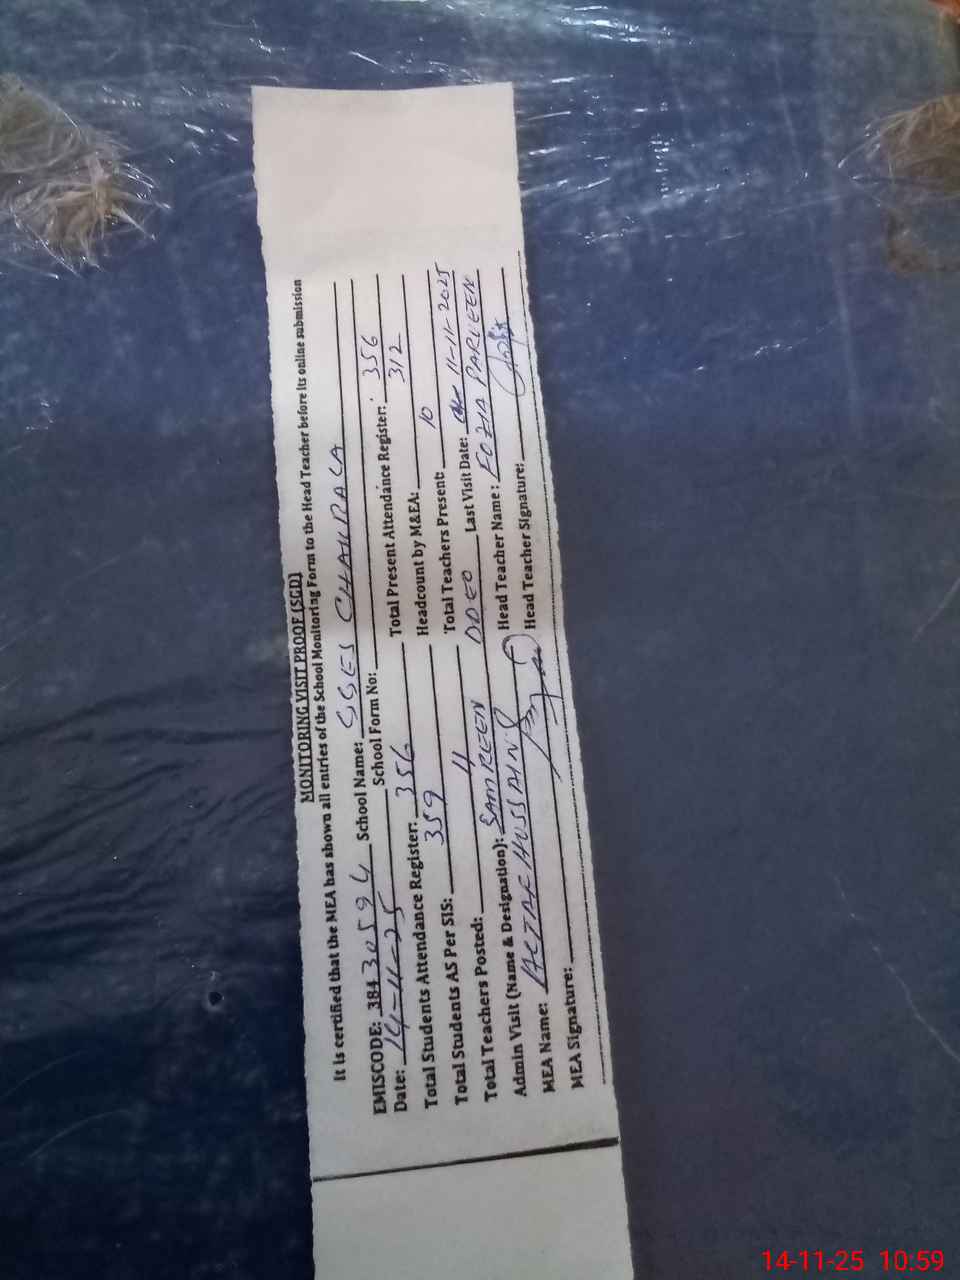 MONITORING VISIT PROOF (SGD)
It is certified that the MEA has shown all entries of the School Monitoring Form to the Head Teacher before its online submission
EMISCODE: 38430594 School Name: GGES CHAKRALA
Date: 14-11-25 School Form No:
Total Students Attendance Register: 356 Total Present Attendance Register: 356
Total Students AS Per SIS: 359 Headcount by M&EA: 312
Total Teachers Posted: 11 Total Teachers Present: 10
Admin Visit (Name & Designation): SAMREEN DDEO Last Visit Date: 11-11-2025
MEA Name: ALTAF HUSSAIN Head Teacher Name: FOZIA PARVEEN
MEA Signature: Head Teacher Signature:
14-11-25 10:59